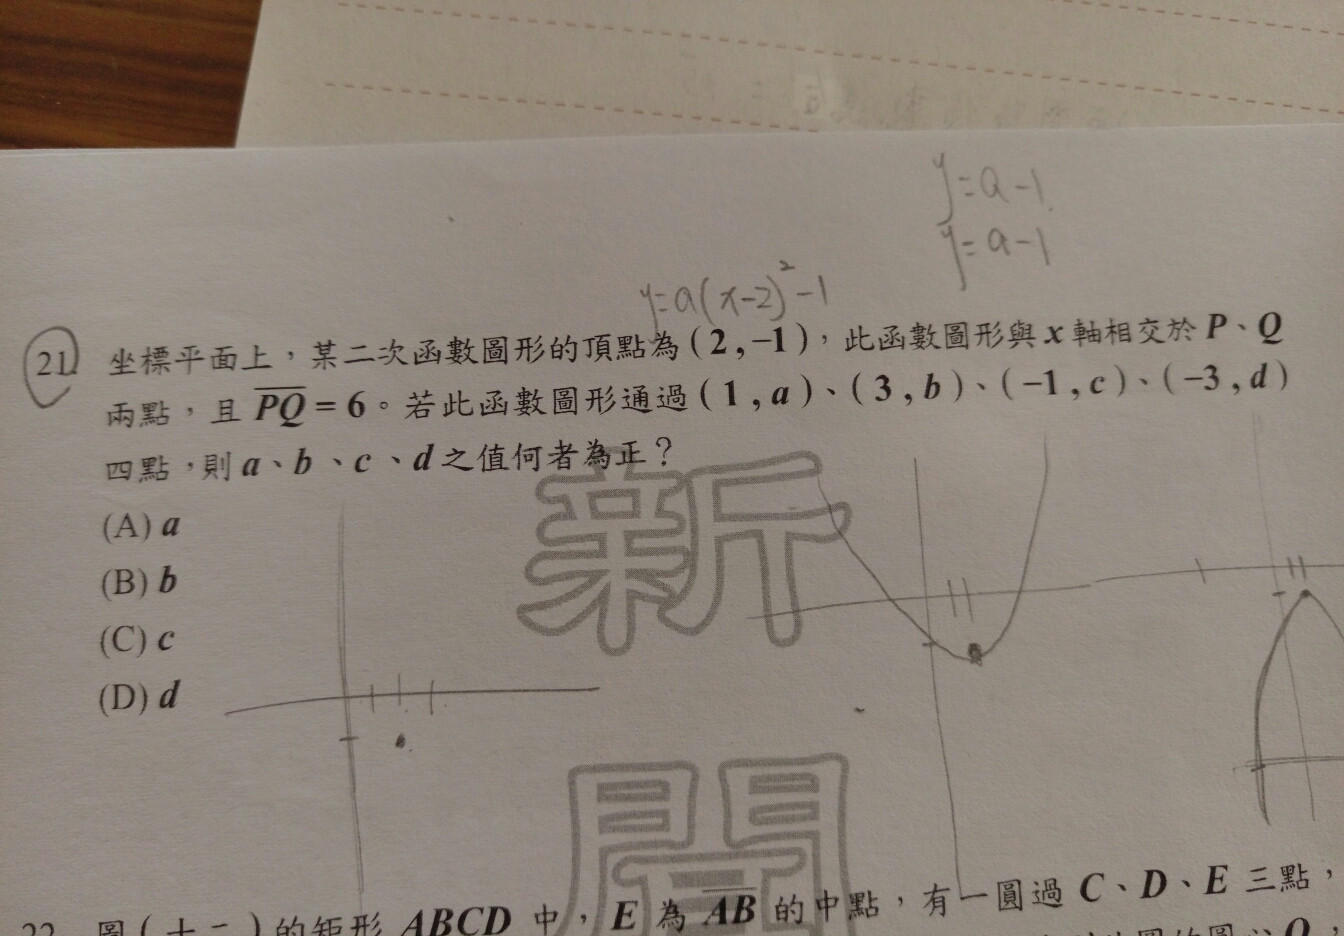 y=a-1
y=a-1
y=a(x-2)²-1
21. 坐標平面上，某二次函數圖形的頂點為(2,-1)，此函數圖形與x軸相交於P、Q
兩點，且PQ=6。若此函數圖形通過(1,a)、(3,b)、(-1,c)、(-3,d)
四點，則a、b、c、d之值何者為正？
(A) a
(B) b
(C) c
(D) d
新
22. 圖(十二)的矩形ABCD中，E為AB的中點，有一圓過C、D、E三點，